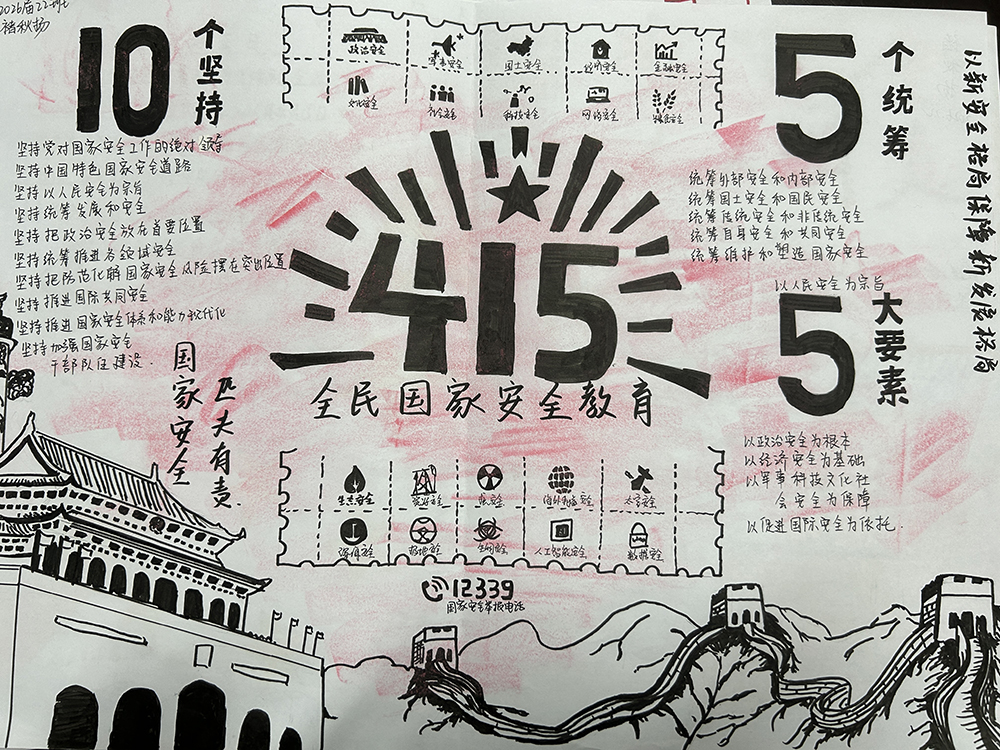 2026届22班
褚秋扬
10个坚持
坚持党对国家安全工作的绝对领导
坚持中国特色国家安全道路
坚持以人民安全为宗旨
坚持统筹发展和安全
坚持把政治安全放在首要位置
坚持统筹推进各领域安全
坚持把防范化解国家安全风险摆在突出位置
坚持推进国际共同安全
坚持推进国家安全体系和能力现代化
坚持加强国家安全
干部队伍建设.
国家安全
匹夫有责
政治安全
军事安全
国土安全
经济安全
金融安全
文化安全
社会安全
科技安全
网络安全
粮食安全
415
全民国家安全教育
生态安全
资源安全
核安全
海外利益安全
太空安全
深海安全
极地安全
生物安全
人工智能安全
数据安全
12339
国家安全举报电话
5个统筹
统筹外部安全和内部安全
统筹国土安全和国民安全
统筹传统安全和非传统安全
统筹自身安全和共同安全
统筹维护和塑造国家安全
5大要素
以人民安全为宗旨
以政治安全为根本
以经济安全为基础
以军事科技文化社
会安全为保障
以促进国际安全为依托.
以新安全格局保障新发展格局